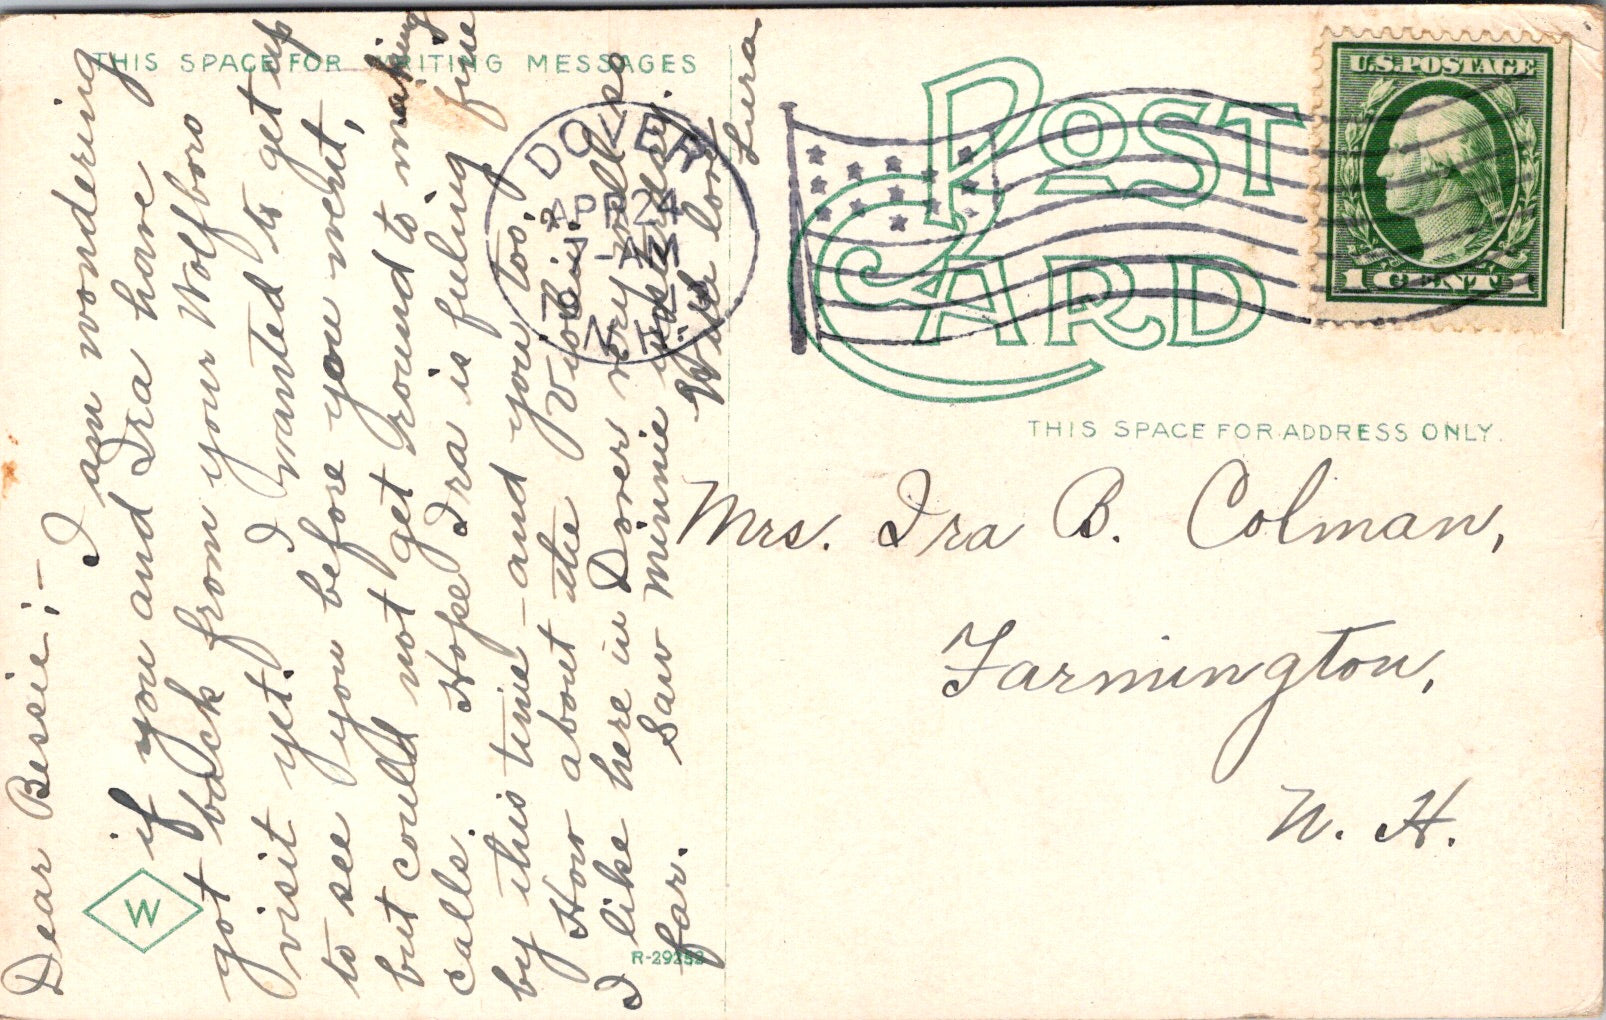 THIS SPACE FOR WRITING MESSAGES
Dear Bessie:-
I am wondering
if you and Ira have
got back from your Wolfboro
visit yet. I wanted to get up
to see you before you went,
but could not get round to making
calls. Hope Ira is feling fine
by this time - and you too.
How about the
I like here in Dover very well so
far. Saw Minnie yesterday.
With love
Lura
W
R-29252
DOVER
APR 24
7-AM
N.H.
POST CARD
U.S. POSTAGE
1 CENT 1
THIS SPACE FOR ADDRESS ONLY.
Mrs. Ira B. Colman,
Farmington,
N. H.